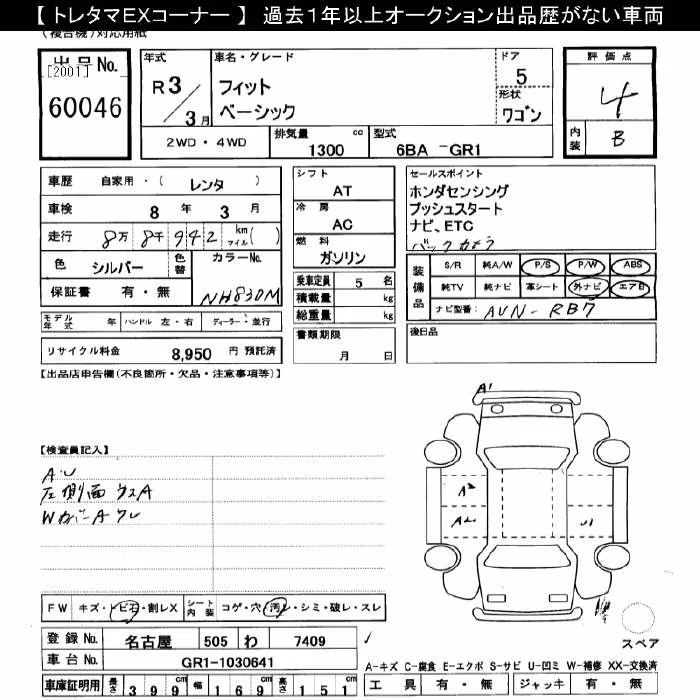 【 トレタマEXコーナー 】 過去1年以上オークション出品歴がない車両
(複合機)対応用紙
出品No.
[2001]
60046
年式
R3/3月
車名・グレード
フィット
ベーシック
ドア
5
形状
ワゴン
評価点
4
内装
B
2WD・4WD
排気量
1300
cc
型式
6BA -GR1
車歴 自家用・( レンタ )
車検 8年 3月
走行 8万 8千 942 km マイル( )
色 シルバー 色替 カラーNo. NH830M
保証書 有・無
モデル年式 年 ハンドル 左・右 ディーラー・並行
リサイクル料金 8,950 円 預託済
シフト
AT
冷房
AC
燃料
ガソリン
乗車定員 5 名
積載量 kg
総重量 kg
書類期限
月 日
セールスポイント
ホンダセンシング
プッシュスタート
ナビ、ETC
バックカメラ
装備品
S/R 純A/W P/S P/W ABS
純TV 純ナビ 革シート 外ナビ エアB
ナビ型番: AVN-RB7
後日品
【出品店申告欄(不良箇所・欠品・注意事項等)】
【検査員記入】
AU
左側面 ウスA
A1
A2
U1
FW キズ・トビ石・割レX シート内装 コゲ・穴・汚レ・シミ・破レ・スレ
登録No. 名古屋 505 わ 7409
車台No. GR1-1030641
車庫証明用 長さ 399 幅 169 高さ 151
スペア
A-キズ C-腐食 E-エクボ S-サビ U-凹ミ W-補修 XX-交換済
工具 有・無 ジャッキ 有・無